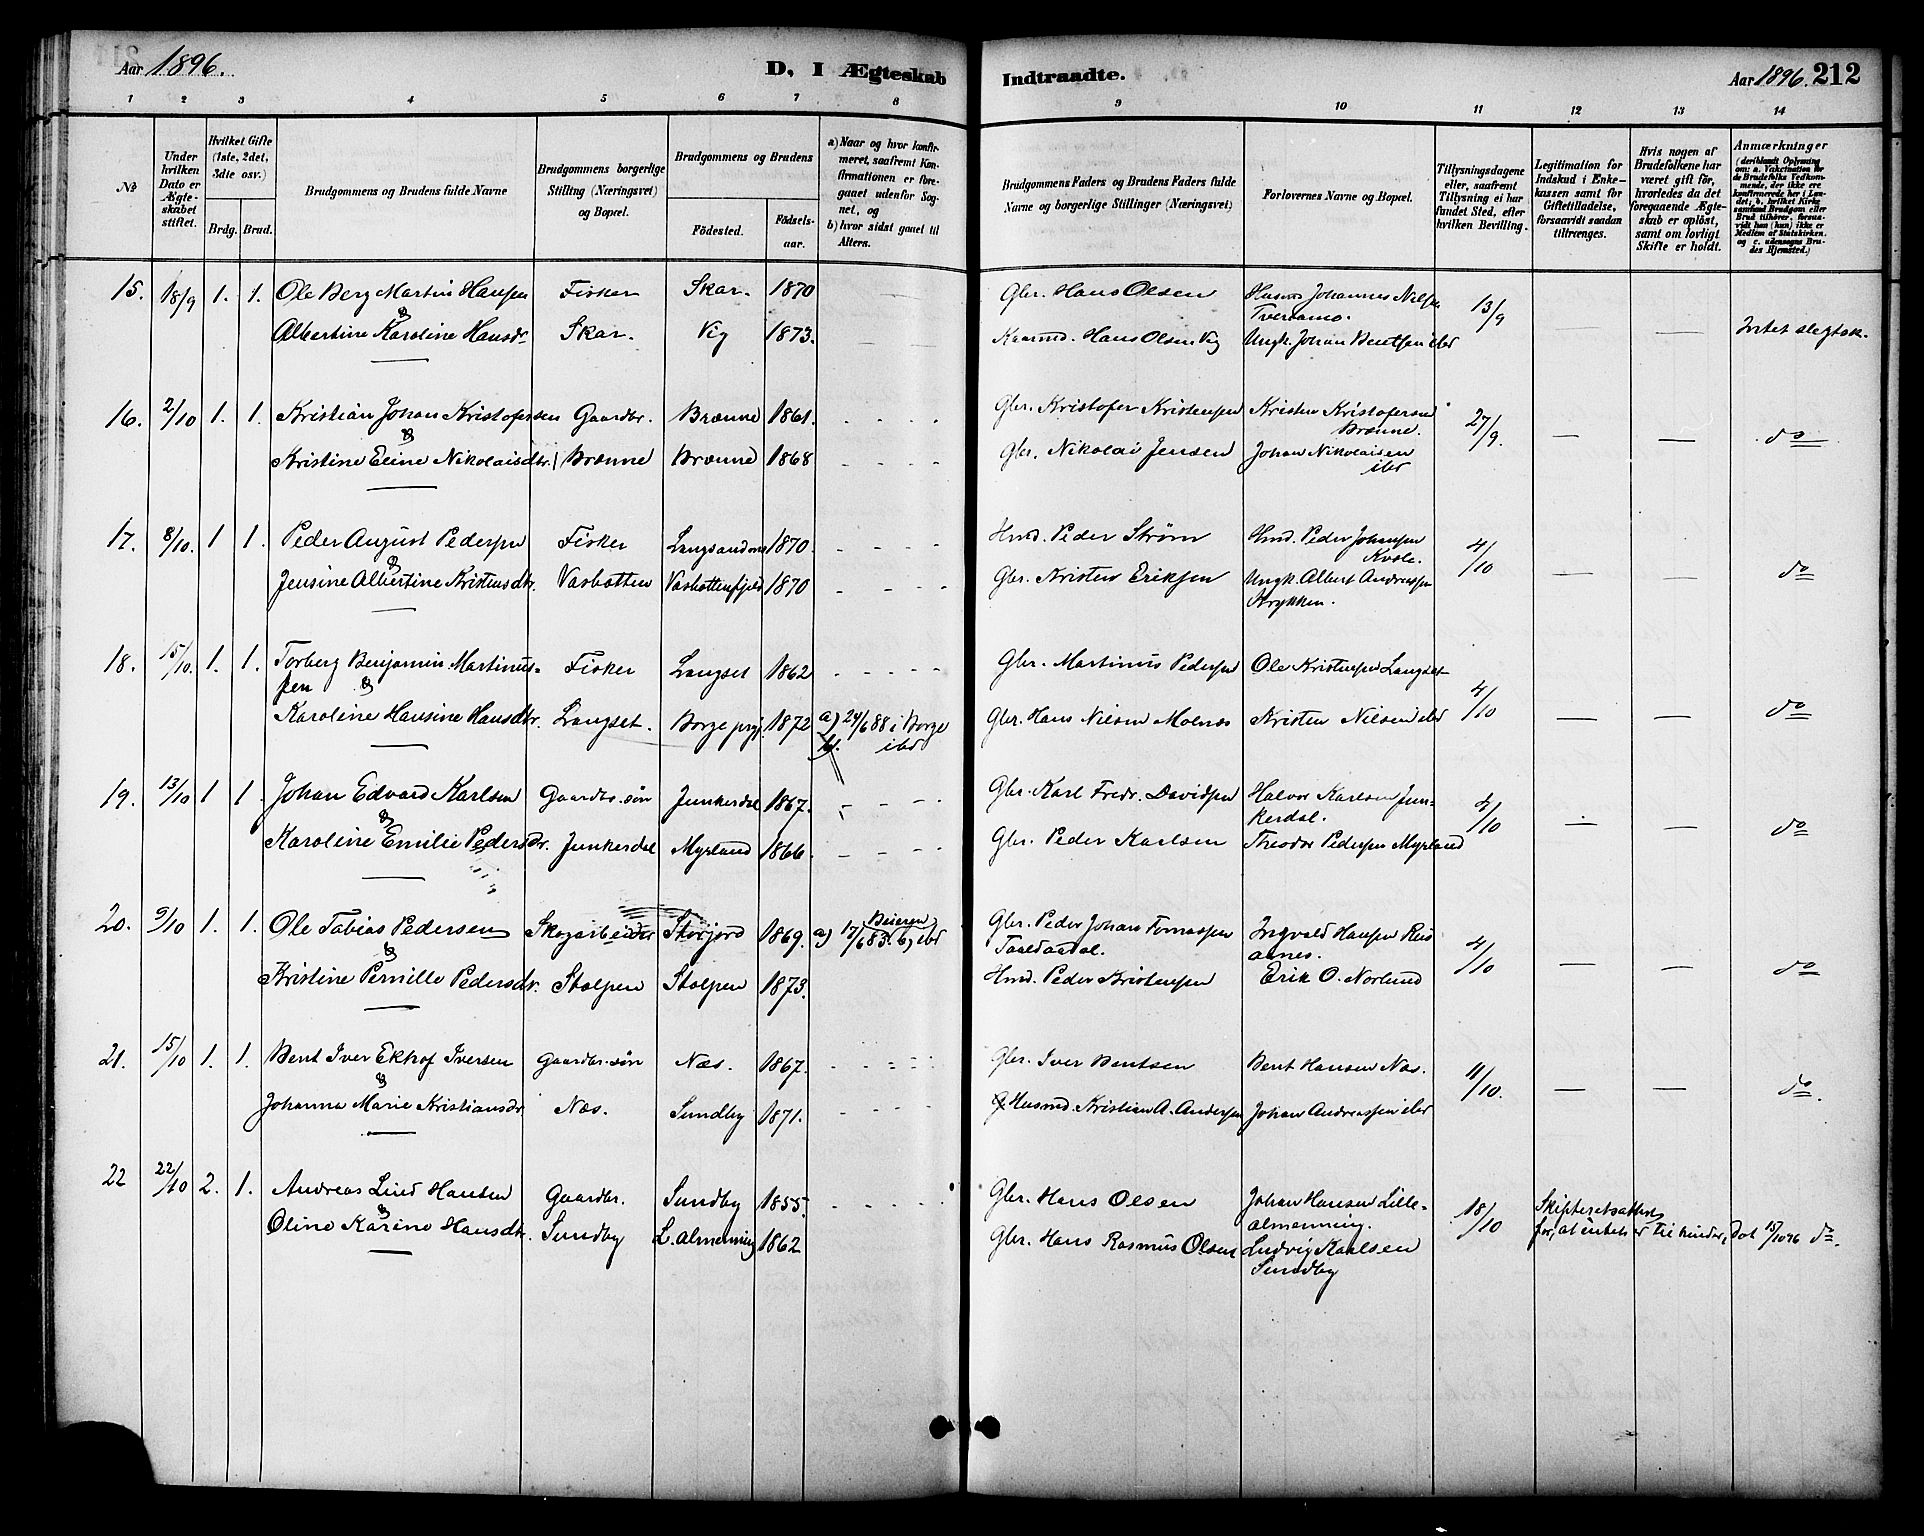 Aar 1896. D, I Ægteskab Indtraadte. Aar 1896. 212
1 2 3 4 5 6 7 8 9 10 11 12 13 14
№
Under hvilken Dato er Ægteskabet stiftet.
Hvilket Gifte (1ste, 2det, 3dte osv.)
Brdg. Brud.
Brudgommens og Brudens fulde Navne
Brudgommens borgerlige Stilling (Næringsvei) og Bopæl.
Brudgommens og Brudens
Födested. Födsels-aar.
a) Naar og hvor konfirmeret, saafremt Konfirmationen er foregaaet udenfor Sognet, og
b) hvor sidst gaaet til Alters.
Brudgommens Faders og Brudens Faders fulde Navne og borgerlige Stillinger (Næringsvei)
Forlovernes Navne og Bopæl.
Tillysningsdagene eller, saafremt Tillysning ei har fundet Sted, efter hvilken Bevilling.
Legitimation for Indskud i Enkekassen samt for Giftetilladelse, forsaavidt saadan tiltrænges.
Hvis nogen af Brudefolkene har været gift för, hvorledes da det foregaaende Ægteskab er oplöst, samt om lovligt Skifte er holdt.
Anmærkninger
(deriblandt Oplysning om: a. Vakcination for de Brudefolks Vedkommende, der ikke ere konfirmerede her i Landet; b. hvilket Kirkesamfund Brudgom eller Brud tilhörer, forsaavidt han (hun) ikke er Medlem af Statskirken, og c. udensogns Brudes Hjemsted.)
15. 18/9 1. 1. Ole Berg Martin Hansen Fisker Skar. 1870 Gbr. Hans Olsen Husmd Johannes Nilsen 13/9
& Tveraamo.
Albertine Karoline Hansdr. Skar. Vig 1873. Kaarmd. Hans Olsen Vig Ungk. Johan Bentsen ibd Intet slegtsk.
16. 2/10 1. 1. Kristian Johan Kristofersen Gaardbr. Brænne 1861. Gbr. Kristofer Kristensen Kristen Kristofersen 27/9.
& Brænne. do
Kristine Eline Nikolaisdtr. Brænne Brænne 1868 Gbr. Nikolai Jensen Johan Nikolaisen
ibd
17. 8/10. 1 1. Peder August Pedersen Fisker Langsandmo 1870. Hmd. Peder Strøm Hmd. Peder Johansen 4/10
& Kvale.
Jensine Albertine Kristensdtr. Vasbotten Vasbottenfjeld 1870 Gbr. Kristen Eriksen Ungk. Albert Andreassen do
Krykken.
18. 15/10. 1. 1. Torberg Benjamin Martinus- Fisker Langset 1862 Gbr. Martinus Pedersen Ole Kristensen Langset 4/10
sen &
Karoline Hansine Hansdtr. Langset. Borge prgj. 1872 a) 24/6 88 i Borge Gbr. Hans Nilsen Molnes Kristen Nilsen ibd do
b). ibd
19. 13/10 1 1. Johan Edvard Karlsen Gaardbr. søn Junkerdal 1867. Gbr. Karl Fredr. Davidsen Halvor Karlsen Jun- 4/10
& kerdal.
Karoline Emilie Pedersdr. Junkerdal Myrland 1866. Gbr. Peder Karlsen Theodor Pedersen Myrland do
20. 9/10 1. 1. Ole Tobias Pedersen Skogarbeider Storjord 1869. a) 17/6 83. Beieren b) ibd Gbr. Peder Johan Tomassen Ingvald Hansen Rus 4/10
& aanes.
Kristine Pernille Pedersdr. Stolpen Stolpen 1873. Hmd. Peder Kristensen Erik O. Norlund do
21. 15/10 1. 1. Bent Iver Ekhof Iversen Gaardbr. søn Næs. 1867. Gbr. Iver Bentsen Bent Hansen Næs. 11/10.
&
Johanna Marie Kristiansdr. Næs. Sundby 1871. Husmd. Kristian A. Andersen Johan Andreassen ibd do.
22 22/10 2. 1. Andreas Lind Hansen Gaardbr. Sundby 1855. Gbr. Hans Olsen Johan Hansen Lille- 18/10
& almenning.
Oline Karine Hansdtr. Sundby L. almenning 1862 Gbr. Hans Rasmus Olsen Ludvig Karlsen for, at intet er til hinder, dat 15/10 96 do.
Sundby